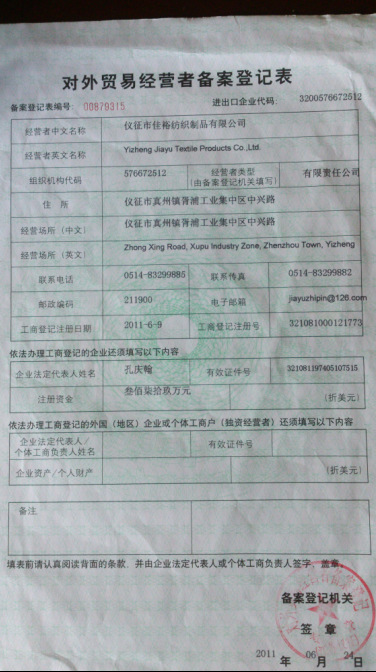 对外贸易经营者备案登记表
备案登记表编号: 00879315 进出口企业代码: 3200576672512
经营者中文名称 仪征市佳裕纺织制品有限公司
经营者英文名称 Yizheng Jiayu Textile Products Co.,Ltd.
组织机构代码 576672512 经营者类型 (由备案登记机关填写) 有限责任公司
住 所 仪征市真州镇胥浦工业集中区中兴路
经营场所(中文) 仪征市真州镇胥浦工业集中区中兴路
经营场所(英文) Zhong Xing Road, Xupu Industry Zone, Zhenzhou Town, Yizheng
联系电话 0514-83299885 联系传真 0514-83299882
邮政编码 211900 电子邮箱 jiayuzhipin@126.com
工商登记注册日期 2011-6-9 工商登记注册号 321081000121773
依法办理工商登记的企业还须填写以下内容
企业法定代表人姓名 孔庆翰 有效证件号 321081197405107515
注册资金 叁佰柒拾玖万元 (折美元)
依法办理工商登记的外国(地区)企业或个体工商户(独资经营者)还须填写以下内容
企业法定代表人/ 个体工商负责人姓名 有效证件号
企业资产/个人财产 (折美元)
备注
填表前请认真阅读背面的条款,并由企业法定代表人或个体工商负责人签字、盖章。
备案登记机关
签 章
2011 年 06 月 24 日